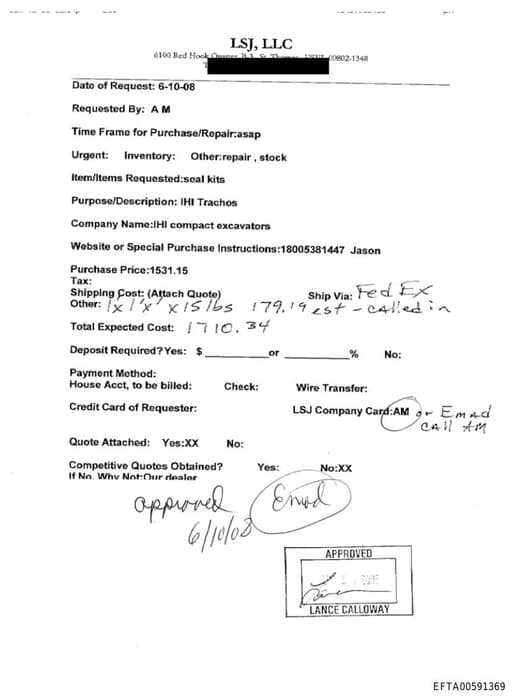 LSJ, LLC
6100 Red Hook Quarter B-3, St. Thomas, USVI 00802-1348
Date of Request: 6-10-08
Requested By: A M
Time Frame for Purchase/Repair:asap
Urgent: Inventory: Other:repair , stock
Item/Items Requested:seal kits
Purpose/Description: IHI Trachos
Company Name:IHI compact excavators
Website or Special Purchase Instructions:18005381447 Jason
Purchase Price:1531.15
Tax:
Shipping Cost: (Attach Quote) Ship Via: Fed EX
Other: 1x1'x'x15lbs 179.19 est - called in
Total Expected Cost: 1710.34
Deposit Required? Yes: $ ________or __________% No:
Payment Method:
House Acct, to be billed: Check: Wire Transfer:
Credit Card of Requester: LSJ Company Card:AM or Emad
call AM
Quote Attached: Yes:XX No:
Competitive Quotes Obtained? Yes: No:XX
If No, Why Not:Our dealer
approved Emad
6/10/08
APPROVED
LANCE CALLOWAY
EFTA00591369